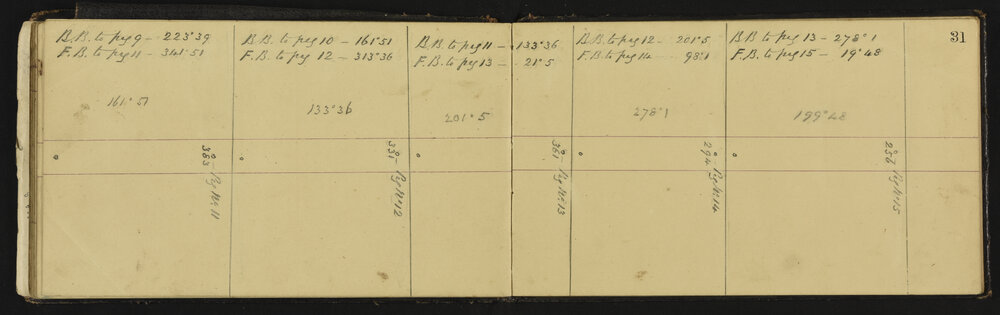 B.B. to peg 9 - 223°39
F.B. to peg 11 - 341°51
161°51
°
383 Peg No 11
B.B. to peg 10 - 161°51
F.B. to peg 12 - 313°36
133°36
°
Peg No 12
B.B. to peg 11 - 133°36
F.B. to peg 13 - 21°5
201°5
°
361 Peg No 13
B.B. to peg 12 - 201°5
F.B. to peg 14 - 98°1
278°1
°
294 Peg No 14
B.B. to peg 13 - 278°1
F.B. to peg 15 - 19°48
199°48
°
Peg No 15
31